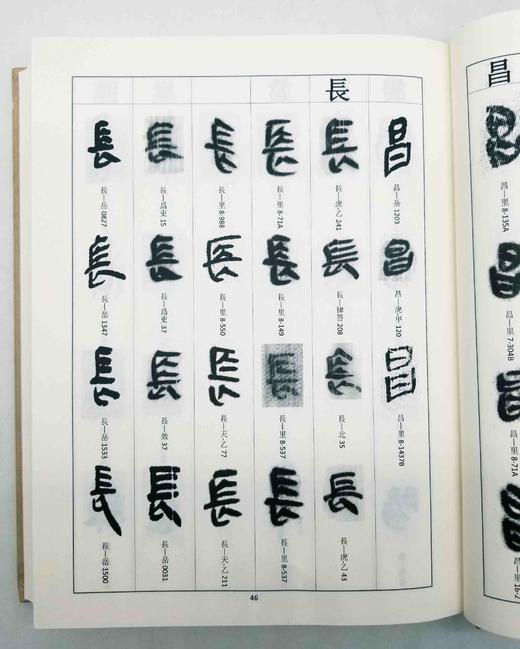 昌
昌—里 8-135A
昌—里 7-304B
昌—里 8-71A
昌—岳 1203
昌—虎·甲 120
昌—里 8-1437B
長
長—虎·乙 241
長—律答 208
長—北 35
長—虎·乙 43
長—里 8-71A
長—里 8-149
長—里 8-537
長—里 8-537
長—里 8-988
長—里 8-550
長—天·乙 77
長—天·乙 211
長—爲吏 15
長—爲吏 37
長—效 37
長—岳 0031
長—岳 0827
長—岳 1347
長—岳 1533
長—岳 1500
46